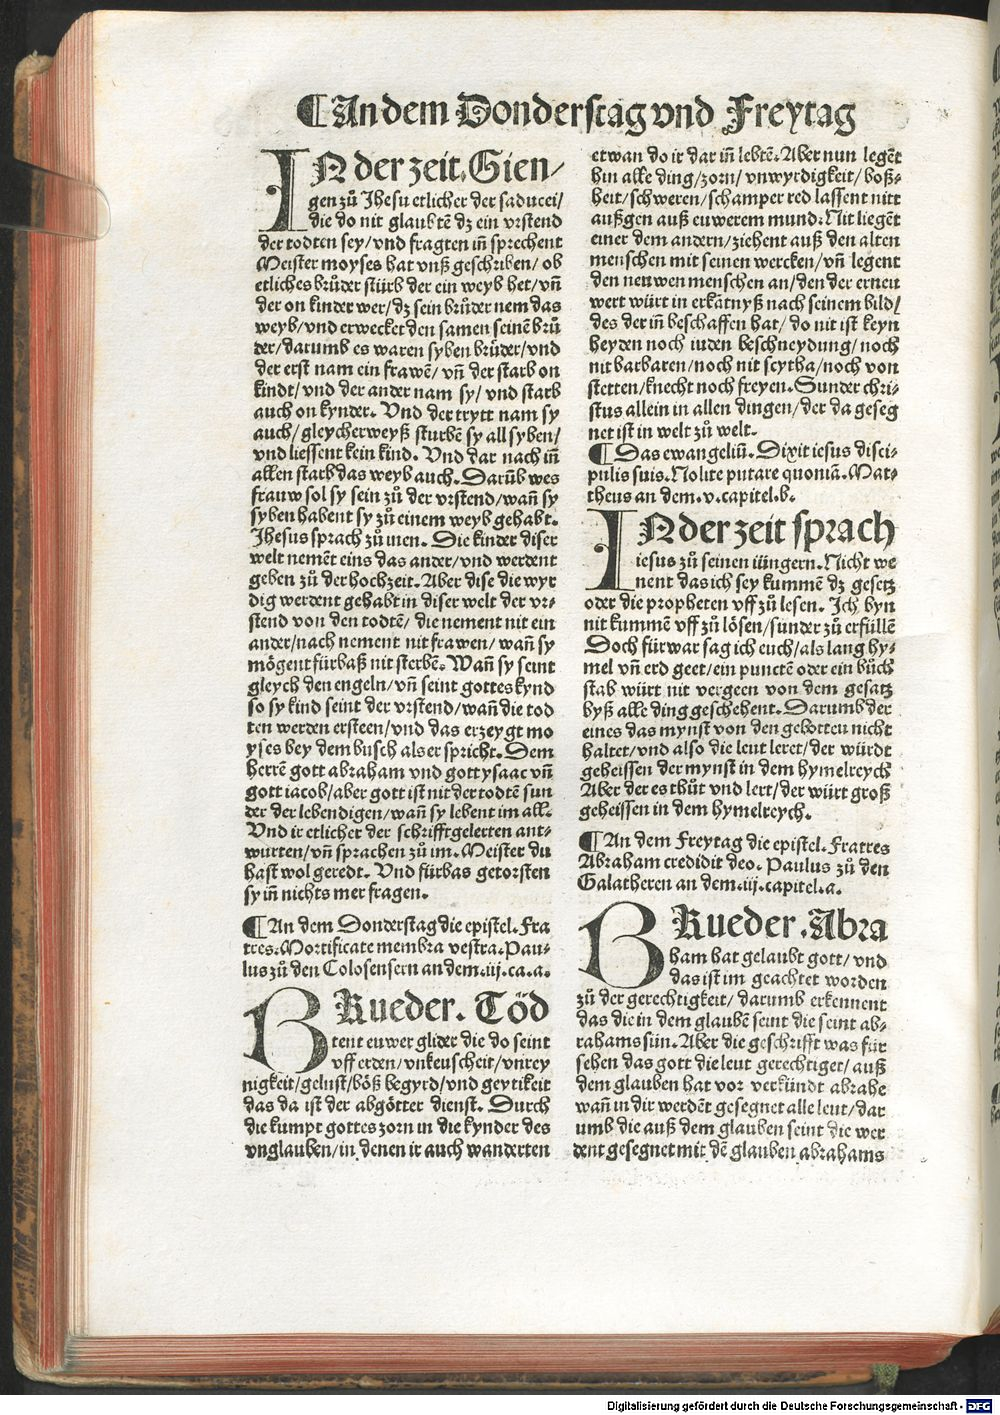 ¶An dem Donderstag vnd Freytag
IN der zeit. Gien/
gen zů Jhesu etlicher der saducei/
die do nit glaubtē dz ein vrstend
der todten sey/vnd fragten in̄ sprechent
Meister moyses hat vnß geschriben/ ob
etliches brůder stürb der ein weyb het/vn̄
der on kinder wer/dz sein brůder nem das
weyb/vnd erwecket den samen seinē brů
der/darumb es waren syben brůder/vnd
der erst nam ein frawē/ vn̄ der starb on
kindt/vnd der ander nam sy/ vnd starb
auch on kynder. Vnd der trytt nam sy
auch/gleycherweyß sturbē sy all syben/
vnd liessent kein kind. Vnd dar nach in̄
allen starb das weyb auch. Darūb wes
frauw sol sy sein zů der vrstend/wan̄ sy
syben habent sy zů einem weyb gehabt.
Jhesus sprach zů inen. Die kinder diser
welt nemēt eins das ander/vnd werdent
geben zů der hochzeit. Aber dise die wyr
dig werdent gehabt in diser welt der vr⸗
stend von den todtē/ die nement nit ein
ander/nach nement nit frawen/ wan̄ sy
mögent fürbaß nit sterbē. Wan̄ sy seint
gleych den engeln/vn̄ seint gottes kynd
so sy kind seint der vrstend/wan̄ die tod
ten werden ersteen/vnd das erzeygt mo
yses bey dem busch als er spricht. Dem
herrē gott abraham vnd gott ysaac vn̄
gott iacob/aber gott ist nit der todtē sun
der der lebendigen/wan̄ sy lebent im all.
Vnd ir etlicher der schrifftgelerten ant⸗
wurten/vn̄ sprachen zů im. Meister du
hast wol geredt. Vnd fürbas getorsten
sy in̄ nichts mer fragen.
¶An dem Donderstag die epistel. Fra
tres. Mortificate membra vestra. Pau⸗
lus zů den Colosensern an dem. iij. ca. a.
BRueder. Töd
tent euwer glider die do seint
vff erden/vnkeuscheit/vnrey
nigkeit/gelust/böß begyrd/vnd geytikeit
das da ist der abgötter dienst. Durch
die kumpt gottes zorn in die kynder des
vnglauben/in denen ir auch wanderten
etwan do ir dar in̄ lebtē. Aber nun legēt
hin alle ding/zorn/ vnwyrdigkeit/boß⸗
heit/schweren/schamper red lassent nitt
außgen auß euwerem mund. Nit liegēt
einer dem andern/ziehent auß den alten
menschen mit seinen wercken/vn̄ legent
den neuwen menschen an/den der erneu
wert würt in erkātnyß nach seinem bild/
des der in̄ beschaffen hat/ do nit ist keyn
heyden noch iuden beschneydung/ noch
nit barbaren/noch nit scytha/noch von
stetten/knecht noch freyen. Sunder chri⸗
stus allein in allen dingen/der da geseg
net ist in welt zů welt.
¶Das ewangeliū. Dixit iesus disci⸗
pulis suis. Nolite putare quoniā. Mat⸗
theus an dem. v. capitel. b.
IN der zeit sprach
iesus zů seinen iüngern. Nicht we
nent das ich sey kummē dz gesetz
oder die propheten vff zů lesen. Ich byn
nit kummē vff zů lösen/sunder zů erfüllē
Doch fürwar sag ich euch/als lang hy⸗
mel vn̄ erd geet/ein punctē oder ein bůch
stab würt nit vergeen von dem gesatz
byß alle ding geschehent. Darumb der
eines das mynst von den gebotten nicht
haltet/vnd also die leut leret/der würdt
geheissen der mynst in dem hymelreych
Aber der es thůt vnd lert/der würt groß
geheissen in dem hymelreych.
¶An dem Freytag die epistel. Fratres
Abraham credidit deo. Paulus zů den
Galatheren an dem. iij. capitel. a.
BRueder. Abra
ham hat gelaubt gott/ vnd
das ist im geachtet worden
zů der gerechtigkeit/ darumb erkennent
das die in dem glaubē seint die seint ab⸗
rahams sün. Aber die geschrifft was für
sehen das gott die leut gerechtiger/ auß
dem glauben hat vor verkündt abrahe
wan̄ in dir werdēt gesegnet alle leut/dar
umb die auß dem glauben seint die wer
dent gesegnet mit dē glauben abrahams
Digitalisierung gefördert durch die Deutsche Forschungsgemeinschaft - DFG